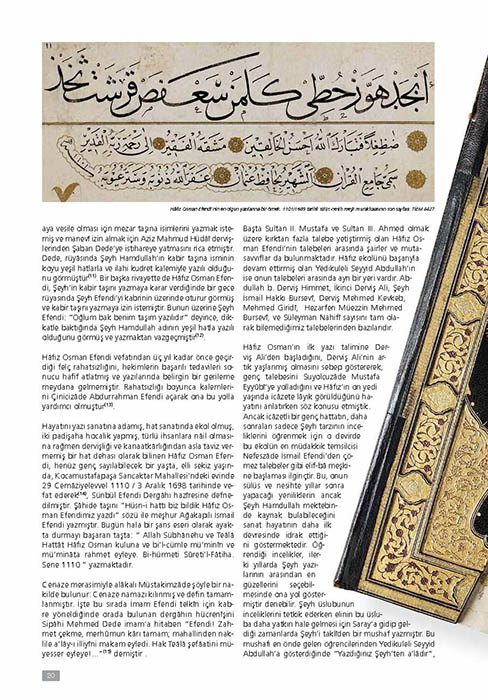 ابجد هوز حطي كلمن سعفص قرشت ثخذ
Hâfız Osman Efendi'nin en olgun yazılarına bir örnek. 1101/1689 tarihli sülüs-nesih meşk murakkaasının son sayfası. TİEM 4427
aya vesile olması için mezar taşına isimlerini yazmak iste-
miş ve manevî izin almak için Aziz Mahmud Hüdâî derviş-
lerinden Şaban Dede'ye istihareye yatmasını rica etmiştir.
Dede, rüyâsında Şeyh Hamdullah'ın kabir taşına isminin
koyu yeşil hatlarla ve ilahi kudret kalemiyle yazılı olduğu-
nu görmüştür(11). Bir başka rivayette de Hâfız Osman Efen-
di, Şeyh'in kabir taşını yazmaya karar verdiğinde bir gece
rüyasında Şeyh Efendi'yi kabrinin üzerinde oturur görmüş
ve kabir taşını yazmaya izin istemiştir. Bunun üzerine Şeyh
Efendi: "Oğlum bak benim taşım yazılıdır" deyince, dik-
katle baktığında Şeyh Hamdullah adının yeşil hatla yazılı
olduğunu görmüş ve yazmaktan vazgeçmiştir(12)
Hâfız Osman Efendi vefatından üç yıl kadar önce geçir-
diği felç rahatsızlığını, hekimlerin başarılı tedavileri so-
nucu hafif atlatmış ve yazılarında belirgin bir gerileme
meydana gelmemiştir. Rahatsızlığı boyunca kalemleri-
ni Çinicizâde Abdurrahman Efendi açarak ona bu yolla
yardımcı olmuştur(13).
Hayatını yazı sanatına adamış, hat sanatında ekol olmuş,
iki padişaha hocalık yapmış, türlü ihsanlara nâil olması-
na rağmen dervişliği ve kanaatkârlığından asla taviz ver-
memiş bir hat dehası olarak bilinen Hâfız Osman Efen-
di, henüz genç sayılabilecek bir yaşta, elli sekiz yaşın-
da, Kocamustafapaşa Sancaktar Mahallesi'ndeki evinde
29 Cemâziyelevvel 1110 / 3 Aralık 1698 tarihinde ve-
fat ederek(14), Sünbül Efendi Dergâhı haziresine defne-
dilmiştir. Şâhide taşını "Hüsn-i hattı biz bildik Hâfız Os-
man Efendimiz yazdı" sözü ile meşhur Ağakapılı İsmail
Efendi yazmıştır. Bugün hala bir şans eseri olarak ayak-
ta durmayı başaran taşta: " Allah Sübhânehu ve Teâlâ
Hattât Hâfız Osman kuluna ve bi'l-cümle mü'minîn ve
mü'minâta rahmet eyleye. Bi-hürmeti Sûreti'l-Fâtiha.
Sene 1110 " yazmaktadır.
Cenaze merasimiyle alâkalı Müstakimzâde şöyle bir na-
kilde bulunur: Cenaze namazı kılınmış ve defin tamam-
lanmıştır. İşte bu sırada imam Efendi telkîn için kab-
re yöneldiğinde orada bulunan dergâhın hücrenîşini
Sipâhi Mehmed Dede imam'a hitaben "Efendi! Zah-
met çekme, merhûmun kârı tamam; mahallinden nak-
lile a'lây-ı illiyîni makam eyledi. Hak Teâlâ şefâatini mü-
yesser eyleye!..."(15) demiştir .
Başta Sultan II. Mustafa ve Sultan III. Ahmed olmak
üzere kırktan fazla talebe yetiştirmiş olan Hâfız Os-
man Efendi'nin talebeleri arasında şairler ve muta-
savvıflar da bulunmaktadır. Hâfız ekolünü başarıyla
devam ettirmiş olan Yedikuleli Seyyid Abdullah'ın
ise onun talebeleri arasında ayrı bir yeri vardır. Ab-
dullah b. Derviş Himmet, İkinci Derviş Ali, Şeyh
İsmail Hakkı Bursevî, Derviş Mehmed Kevkeb,
Mehmed Giridî, Hezarfen Müezzin Mehmed
Bursevî, ve Süleyman Nahifî sayısını tam ola-
rak bilemediğimiz talebelerinden bazılarıdır.
Hâfız Osman'ın ilk yazı talimine Der-
viş Ali'den başladığını, Derviş Ali'nin ar-
tık yaşlanmış olmasını sebep göstererek,
genç talebesini Suyolcuzâde Mustafa
Eyyûbî'ye yolladığını ve Hâfız'ın on yedi
yaşında icâzete lâyık görüldüğünü ha-
yatını anlatırken söz konusu etmiştik.
Ancak icâzetli bir genç hattatın, daha
sonraları sadece Şeyh tarzının ince-
liklerini öğrenmek için o devirde
bu ekolün en müdakkik temsilcisi
Nefeszâde İsmail Efendi'den çö-
mez talebeler gibi elif-bâ meşki-
ne başlaması ilginçtir. Bu, onun
sülüs ve nesihte yıllar sonra
yapacağı yeniliklerin ancak
Şeyh Hamdullah mektebin-
de kaynak bulabileceğini
sanat hayatının daha ilk
devresinde idrak ettiği-
ni göstermektedir. Öğ-
rendiği incelikler, iler-
ki yıllarda Şeyh yazı-
larının arasından en
güzellerini seçebil-
mesinde ona yol göster-
miştir denebilir. Şeyh üslubunun
inceliklerini tetkik ederken elinin bu üslu-
ba daha yatkın hale gelmesi için Saray'a gidip gel-
diği zamanlarda Şeyh'i taklîden bir mushaf yazmıştır. Bu
mushafı en önde gelen öğrencilerinden Yedikuleli Seyyid
Abdullah'a gösterdiğinde "Yazdığınız Şeyh'ten a'lâdır",
20